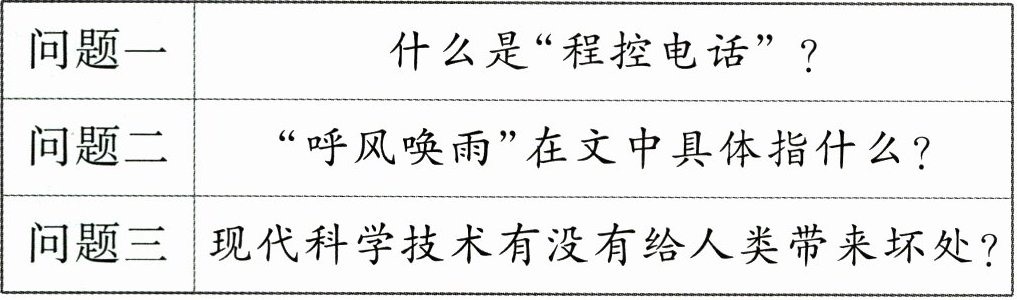 问题一 什么是“程控电话”？
问题二 “呼风唤雨”在文中具体指什么？
问题三 现代科学技术有没有给人类带来坏处？